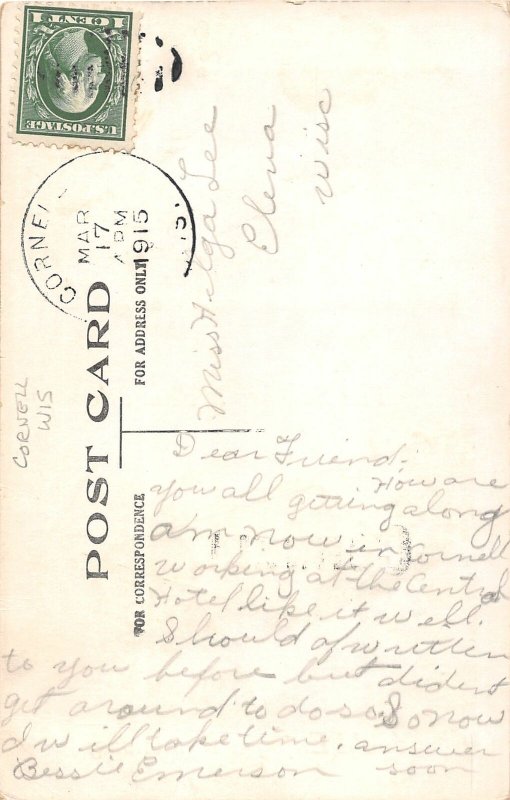 U.S. POSTAGE
1 CENT 1
CORNEL
WIS.
MAR
17
4 PM
1915
CORNELL
WIS
POST CARD
FOR CORRESPONDENCE
FOR ADDRESS ONLY
Miss Helga Lee
Eleva
Wisc
Dear Friend;
How are
you all getting along
am now in Cornell
working at the Central
Hotel like it well.
Should of written
to you before but dident
get around to do so. So now
I will take time. answer
Bessie Emerson soon